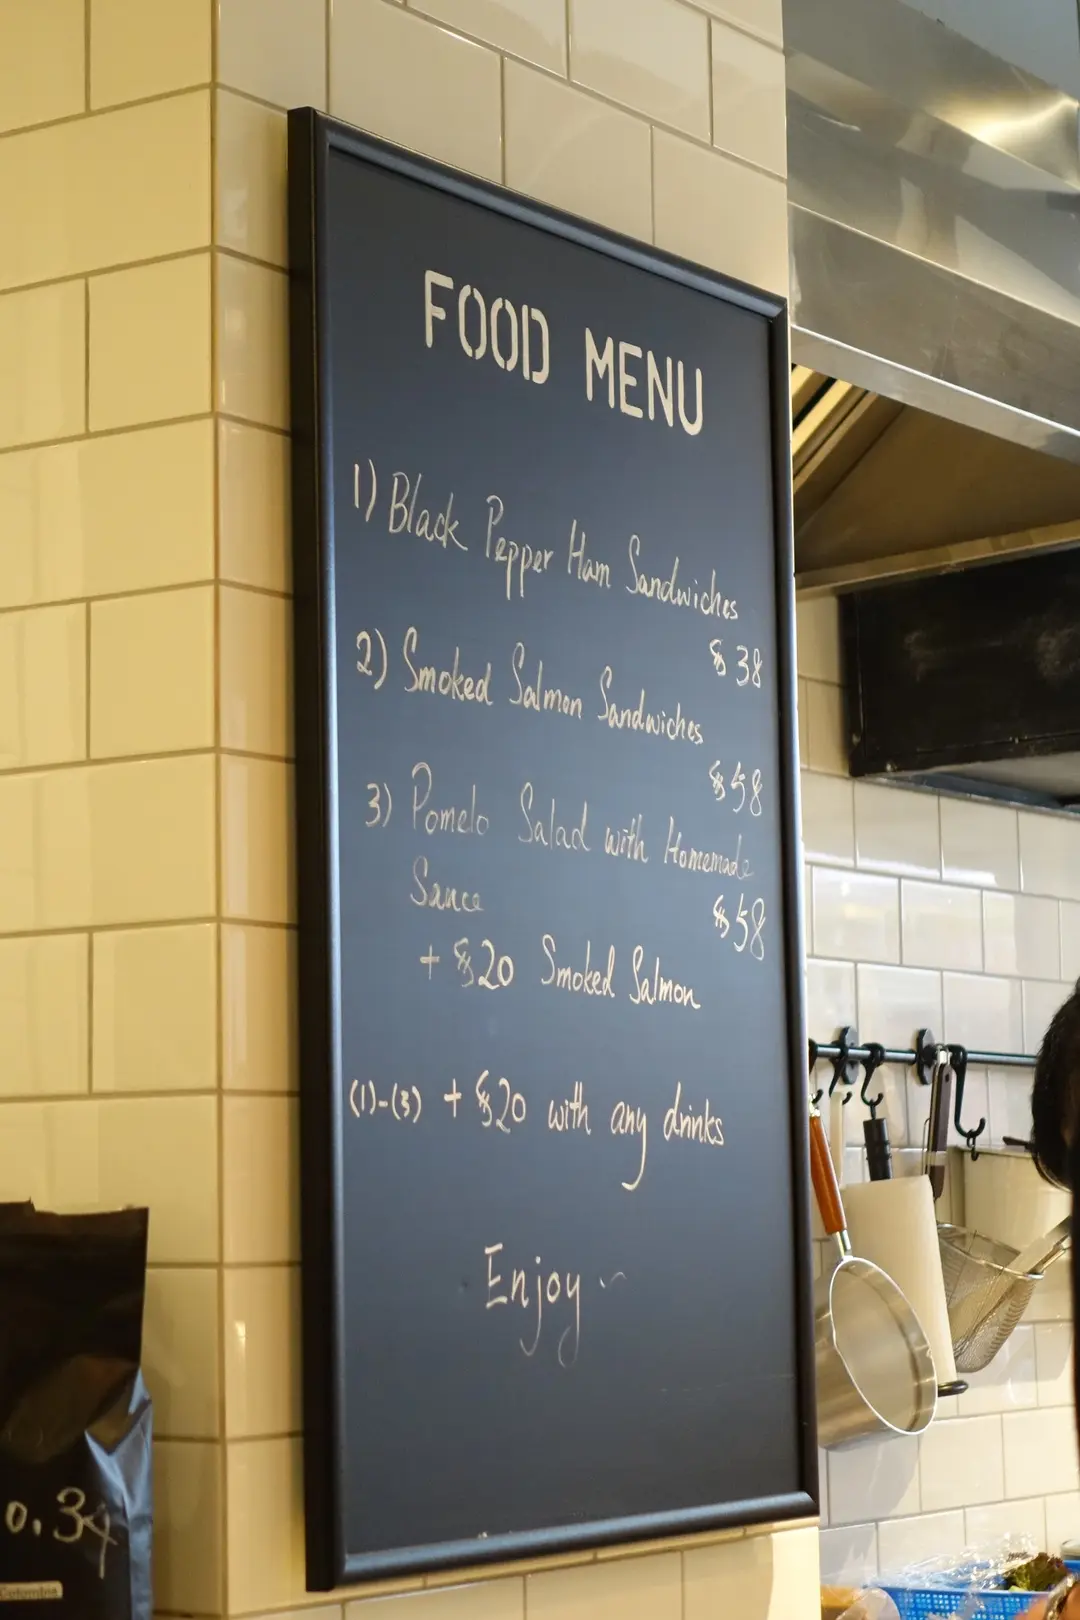 FOOD MENU
1) Black Pepper Ham Sandwiches
$38
2) Smoked Salmon Sandwiches
$58
3) Pomelo Salad with Homemade
Sauce
$58
+ $20 Smoked Salmon
(1)-(3) + $20 with any drinks
Enjoy~
o.34
Colombia